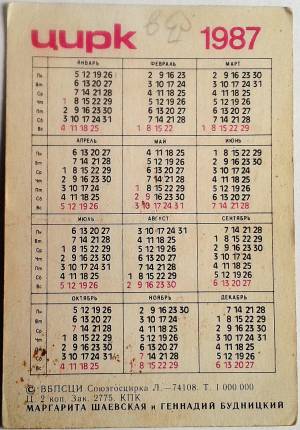 цирк 1987
ЯНВАРЬ ФЕВРАЛЬ МАРТ
Пн 5 12 19 26 2 9 16 23 2 9 16 23 30
Вт 6 13 20 27 3 10 17 24 3 10 17 24 31
Ср 7 14 21 28 4 11 18 25 4 11 18 25
Чт 1 8 15 22 29 5 12 19 26 5 12 19 26
Пт 2 9 16 23 30 6 13 20 27 6 13 20 27
Сб 3 10 17 24 31 7 14 21 28 7 14 21 28
Вс 4 11 18 25 1 8 15 22 1 8 15 22 29
АПРЕЛЬ МАЙ ИЮНЬ
Пн 6 13 20 27 4 11 18 25 1 8 15 22 29
Вт 7 14 21 28 5 12 19 26 2 9 16 23 30
Ср 1 8 15 22 29 6 13 20 27 3 10 17 24
Чт 2 9 16 23 30 7 14 21 28 4 11 18 25
Пт 3 10 17 24 1 8 15 22 29 5 12 19 26
Сб 4 11 18 25 2 9 16 23 30 6 13 20 27
Вс 5 12 19 26 3 10 17 24 31 7 14 21 28
ИЮЛЬ АВГУСТ СЕНТЯБРЬ
Пн 6 13 20 27 3 10 17 24 31 7 14 21 28
Вт 7 14 21 28 4 11 18 25 1 8 15 22 29
Ср 1 8 15 22 29 5 12 19 26 2 9 16 23 30
Чт 2 9 16 23 30 6 13 20 27 3 10 17 24
Пт 3 10 17 24 31 7 14 21 28 4 11 18 25
Сб 4 11 18 25 1 8 15 22 29 5 12 19 26
Вс 5 12 19 26 2 9 16 23 30 6 13 20 27
ОКТЯБРЬ НОЯБРЬ ДЕКАБРЬ
Пн 5 12 19 26 2 9 16 23 30 7 14 21 28
Вт 6 13 20 27 3 10 17 24 1 8 15 22 29
Ср 7 14 21 28 4 11 18 25 2 9 16 23 30
Чт 1 8 15 22 29 5 12 19 26 3 10 17 24 31
Пт 2 9 16 23 30 6 13 20 27 4 11 18 25
Сб 3 10 17 24 31 7 14 21 28 5 12 19 26
Вс 4 11 18 25 1 8 15 22 29 6 13 20 27
© ВБПСЦИ Союзгосцирка Л.—74108. Т. 1 000 000
Ц. 2 коп. Зак. 2775. КПК
МАРГАРИТА ШАЕВСКАЯ и ГЕННАДИЙ БУДНИЦКИЙ